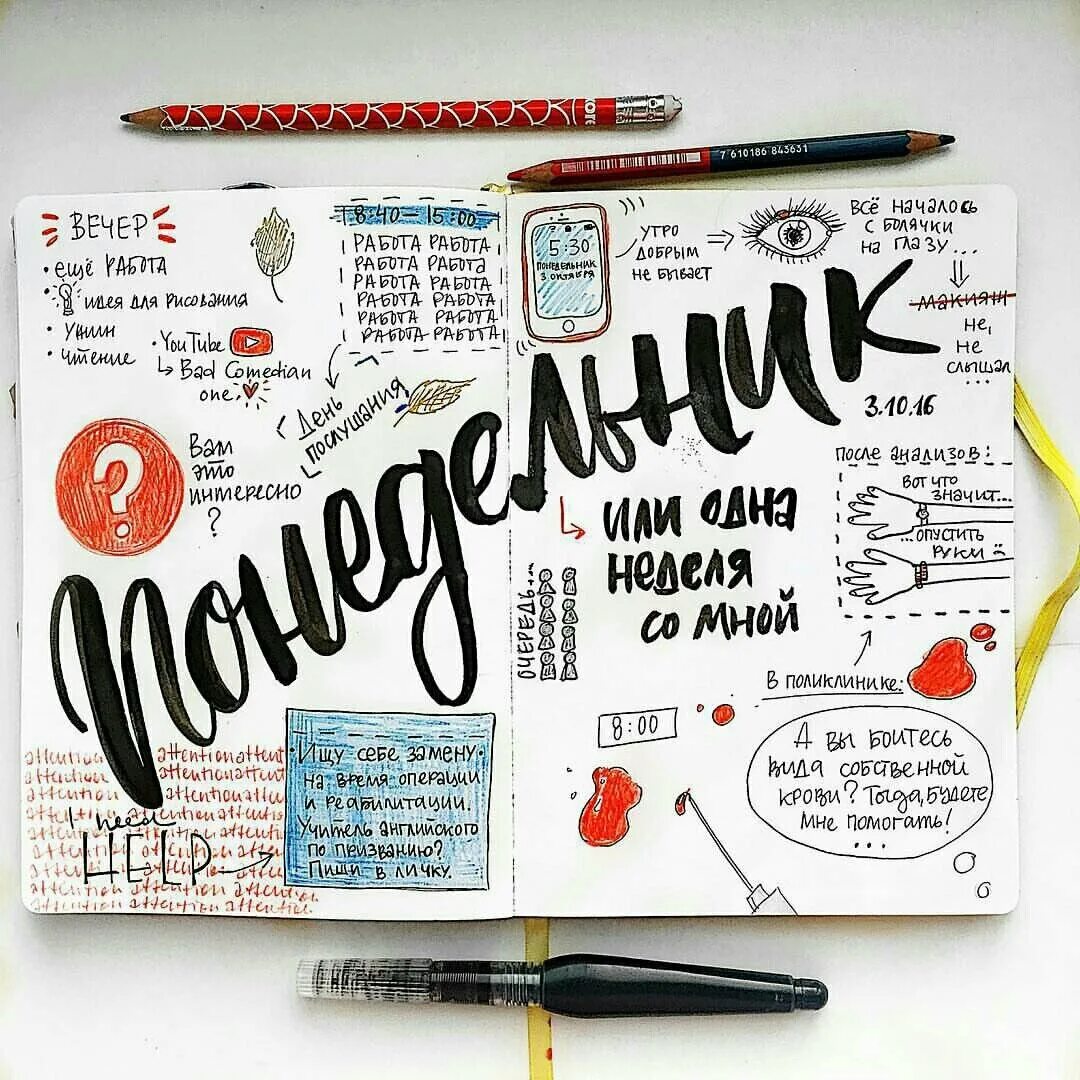 7 610186 843631
ВЕЧЕР
• ещё РАБОТА
• идея для рисования
• УНИН
• чтение
• YouTube
Bad Comedian
one
18:40 — 15:00
РАБОТА РАБОТА
РАБОТА РАБОТА
РАБОТА РАБОТА
РАБОТА РАБОТА
РАБОТА РАБОТА
РАБОТА РАБОТА
День
послушания
Вам
это
интересно
?
?
Понедельник
5:30
ПОНЕДЕЛЬНИК
3 ОКТЯБРЯ
УТРО
ДОБРЫМ
НЕ БЫВАЕТ
ВСЁ НАЧАЛОСЬ
С БОЛЯЧКИ
НА ГЛАЗУ...
МАКИЯЖ
НЕ,
НЕ
СЛЫШАЛ
...
3.10.16
или одна
неделя
со мной
ПОСЛЕ АНАЛИЗОВ:
ВОТ ЧТО
ЗНАЧИТ...
...ОПУСТИТЬ
РУКИ
ОЧЕРЕДЬ...
В ПОЛИКЛИНИКЕ:
8:00
А ВЫ БОИТЕСЬ
ВИДА СОБСТВЕННОЙ
КРОВИ? ТОГДА, БУДЕТЕ
МНЕ ПОМОГАТЬ!
...
attention attention attent
attention attention attent
attention attention attention
attention attention attention
attention attention attention
attention attention attention
attention attention attention
attention attention attention
attention attention attention
need
HELP
• Ищу себе замену •
на время операции
и реабилитации.
Учитель английского
по призванию?
Пиши в личку.